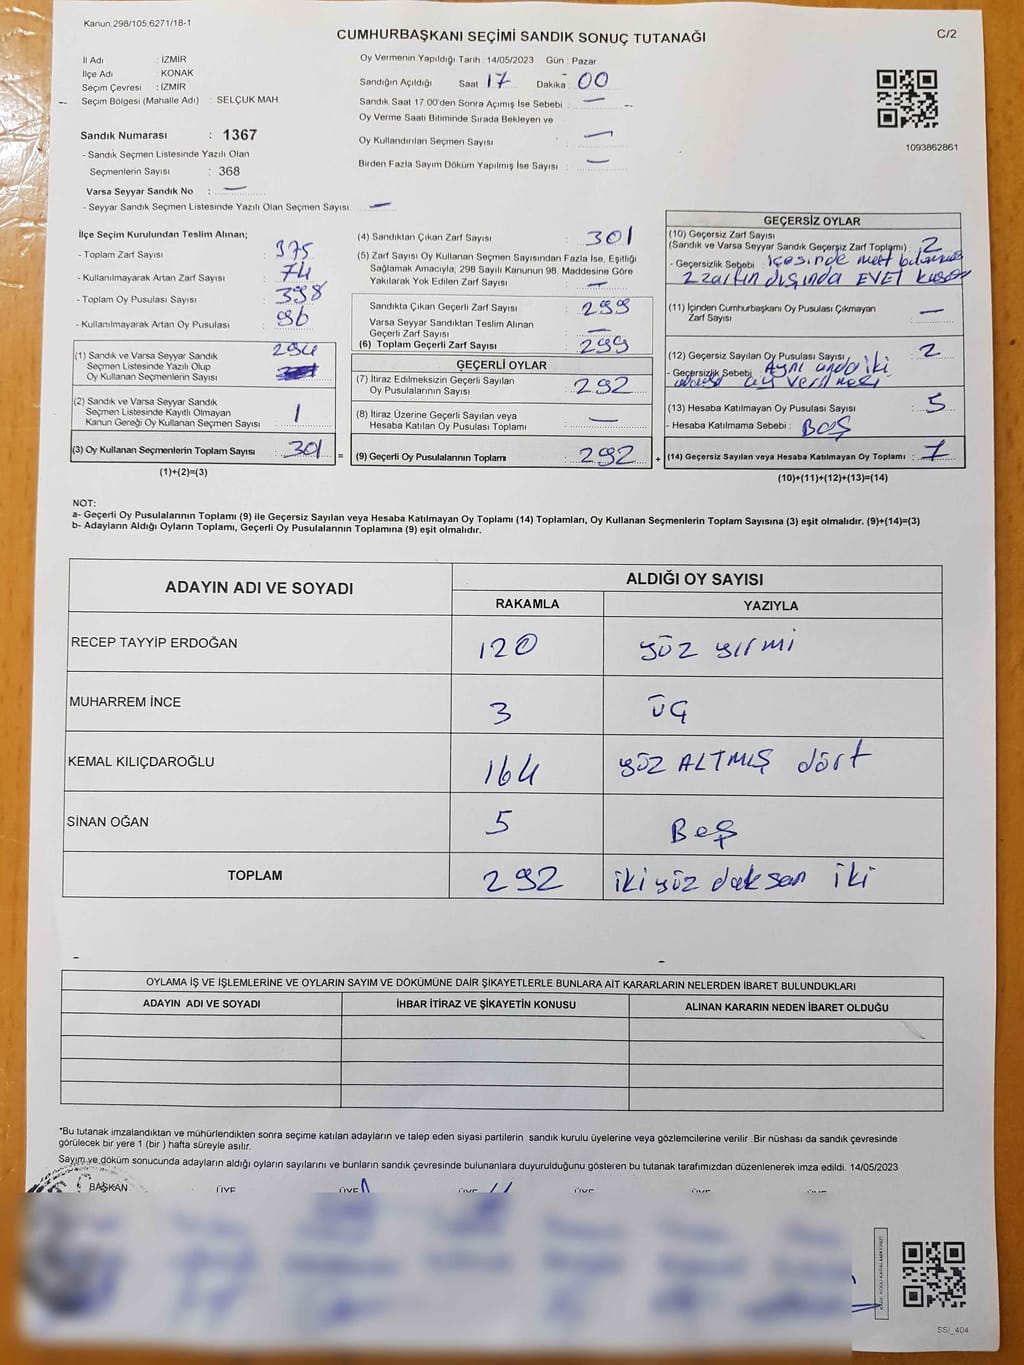 Kanun,298/105,6271/18-1
CUMHURBAŞKANI SEÇİMİ SANDIK SONUÇ TUTANAĞI
C/2
İl Adı : İZMİR
İlçe Adı : KONAK
Seçim Çevresi : İZMİR
Seçim Bölgesi (Mahalle Adı) : SELÇUK MAH.
Sandık Numarası : 1367
- Sandık Seçmen Listesinde Yazılı Olan
Seçmenlerin Sayısı : 368
Varsa Seyyar Sandık No : —
- Seyyar Sandık Seçmen Listesinde Yazılı Olan Seçmen Sayısı: —
Oy Vermenin Yapıldığı Tarih : 14/05/2023 Gün : Pazar
Sandığın Açıldığı Saat : 17 Dakika : 00
Sandık Saat 17:00'den Sonra Açımış İse Sebebi : —
Oy Verme Saati Bitiminde Sırada Bekleyen ve
Oy Kullandırılan Seçmen Sayısı : —
Birden Fazla Sayım Döküm Yapılmış İse Sayısı : —
1093862861
İlçe Seçim Kurulundan Teslim Alınan;
- Toplam Zarf Sayısı : 375
- Kullanılmayarak Artan Zarf Sayısı : 74
- Toplam Oy Pusulası Sayısı : 398
- Kullanılmayarak Artan Oy Pusulası : 96
(1) Sandık ve Varsa Seyyar Sandık
Seçmen Listesinde Yazılı Olup
Oy Kullanan Seçmenlerin Sayısı : 294
(2) Sandık ve Varsa Seyyar Sandık
Seçmen Listesinde Kayıtlı Olmayan
Kanun Gereği Oy Kullanan Seçmen Sayısı : 1
(3) Oy Kullanan Seçmenlerin Toplam Sayısı : 301
(1)+(2)=(3)
(4) Sandıktan Çıkan Zarf Sayısı : 301
(5) Zarf Sayısı Oy Kullanan Seçmen Sayısından Fazla İse, Eşitliği
Sağlamak Amacıyla; 298 Sayılı Kanunun 98. Maddesine Göre
Yakılarak Yok Edilen Zarf Sayısı : —
Sandıkta Çıkan Geçerli Zarf Sayısı : 299
Varsa Seyyar Sandıktan Teslim Alınan
Geçerli Zarf Sayısı : —
(6) Toplam Geçerli Zarf Sayısı : 299
GEÇERLİ OYLAR
(7) İtiraz Edilmeksizin Geçerli Sayılan
Oy Pusulalarının Sayısı : 292
(8) İtiraz Üzerine Geçerli Sayılan veya
Hesaba Katılan Oy Pusulası Toplamı : —
=
(9) Geçerli Oy Pusulalarının Toplamı : 292
+
GEÇERSİZ OYLAR
(10) Geçersiz Zarf Sayısı
(Sandık ve Varsa Seyyar Sandık Geçersiz Zarf Toplamı) : 2
- Geçersizlik Sebebi : içesinde
2 zarfın dışında EVET
(11) İçinden Cumhurbaşkanı Oy Pusulası Çıkmayan
Zarf Sayısı : —
(12) Geçersiz Sayılan Oy Pusulası Sayısı : 2
- Geçersizlik Sebebi : Aynı anda iki
oy verilmesi
(13) Hesaba Katılmayan Oy Pusulası Sayısı : 5
- Hesaba Katılmama Sebebi : BOŞ
(14) Geçersiz Sayılan veya Hesaba Katılmayan Oy Toplamı : 7
(10)+(11)+(12)+(13)=(14)
NOT:
a- Geçerli Oy Pusulalarının Toplamı (9) ile Geçersiz Sayılan veya Hesaba Katılmayan Oy Toplamı (14) Toplamları, Oy Kullanan Seçmenlerin Toplam Sayısına (3) eşit olmalıdır. (9)+(14)=(3)
b- Adayların Aldığı Oyların Toplamı, Geçerli Oy Pusulalarının Toplamına (9) eşit olmalıdır.
ADAYIN ADI VE SOYADI
ALDIĞI OY SAYISI
RAKAMLA YAZIYLA
RECEP TAYYİP ERDOĞAN 120 yüz yirmi
MUHARREM İNCE 3 ÜÇ
KEMAL KILIÇDAROĞLU 164 yüz ALTMIŞ dört
SİNAN OĞAN 5 Beş
TOPLAM 292 iki yüz doksan iki
OYLAMA İŞ VE İŞLEMLERİNE VE OYLARIN SAYIM VE DÖKÜMÜNE DAİR ŞİKAYETLERLE BUNLARA AİT KARARLARIN NELERDEN İBARET BULUNDUKLARI
ADAYIN ADI VE SOYADI İHBAR İTİRAZ VE ŞİKAYETİN KONUSU ALINAN KARARIN NEDEN İBARET OLDUĞU
*Bu tutanak imzalandıktan ve mühürlendikten sonra seçime katılan adayların ve talep eden siyasi partilerin sandık kurulu üyelerine veya gözlemcilerine verilir .Bir nüshası da sandık çevresinde
görülecek bir yere 1 (bir ) hafta süreyle asılır.
Sayım ve döküm sonucunda adayların aldığı oyların sayılarını ve bunların sandık çevresinde bulunanlara duyurulduğunu gösteren bu tutanak tarafımızdan düzenlenerek imza edildi. 14/05/2023
BAŞKAN ÜYE ÜYE ÜYE ÜYE ÜYE ÜYE
SSI_404